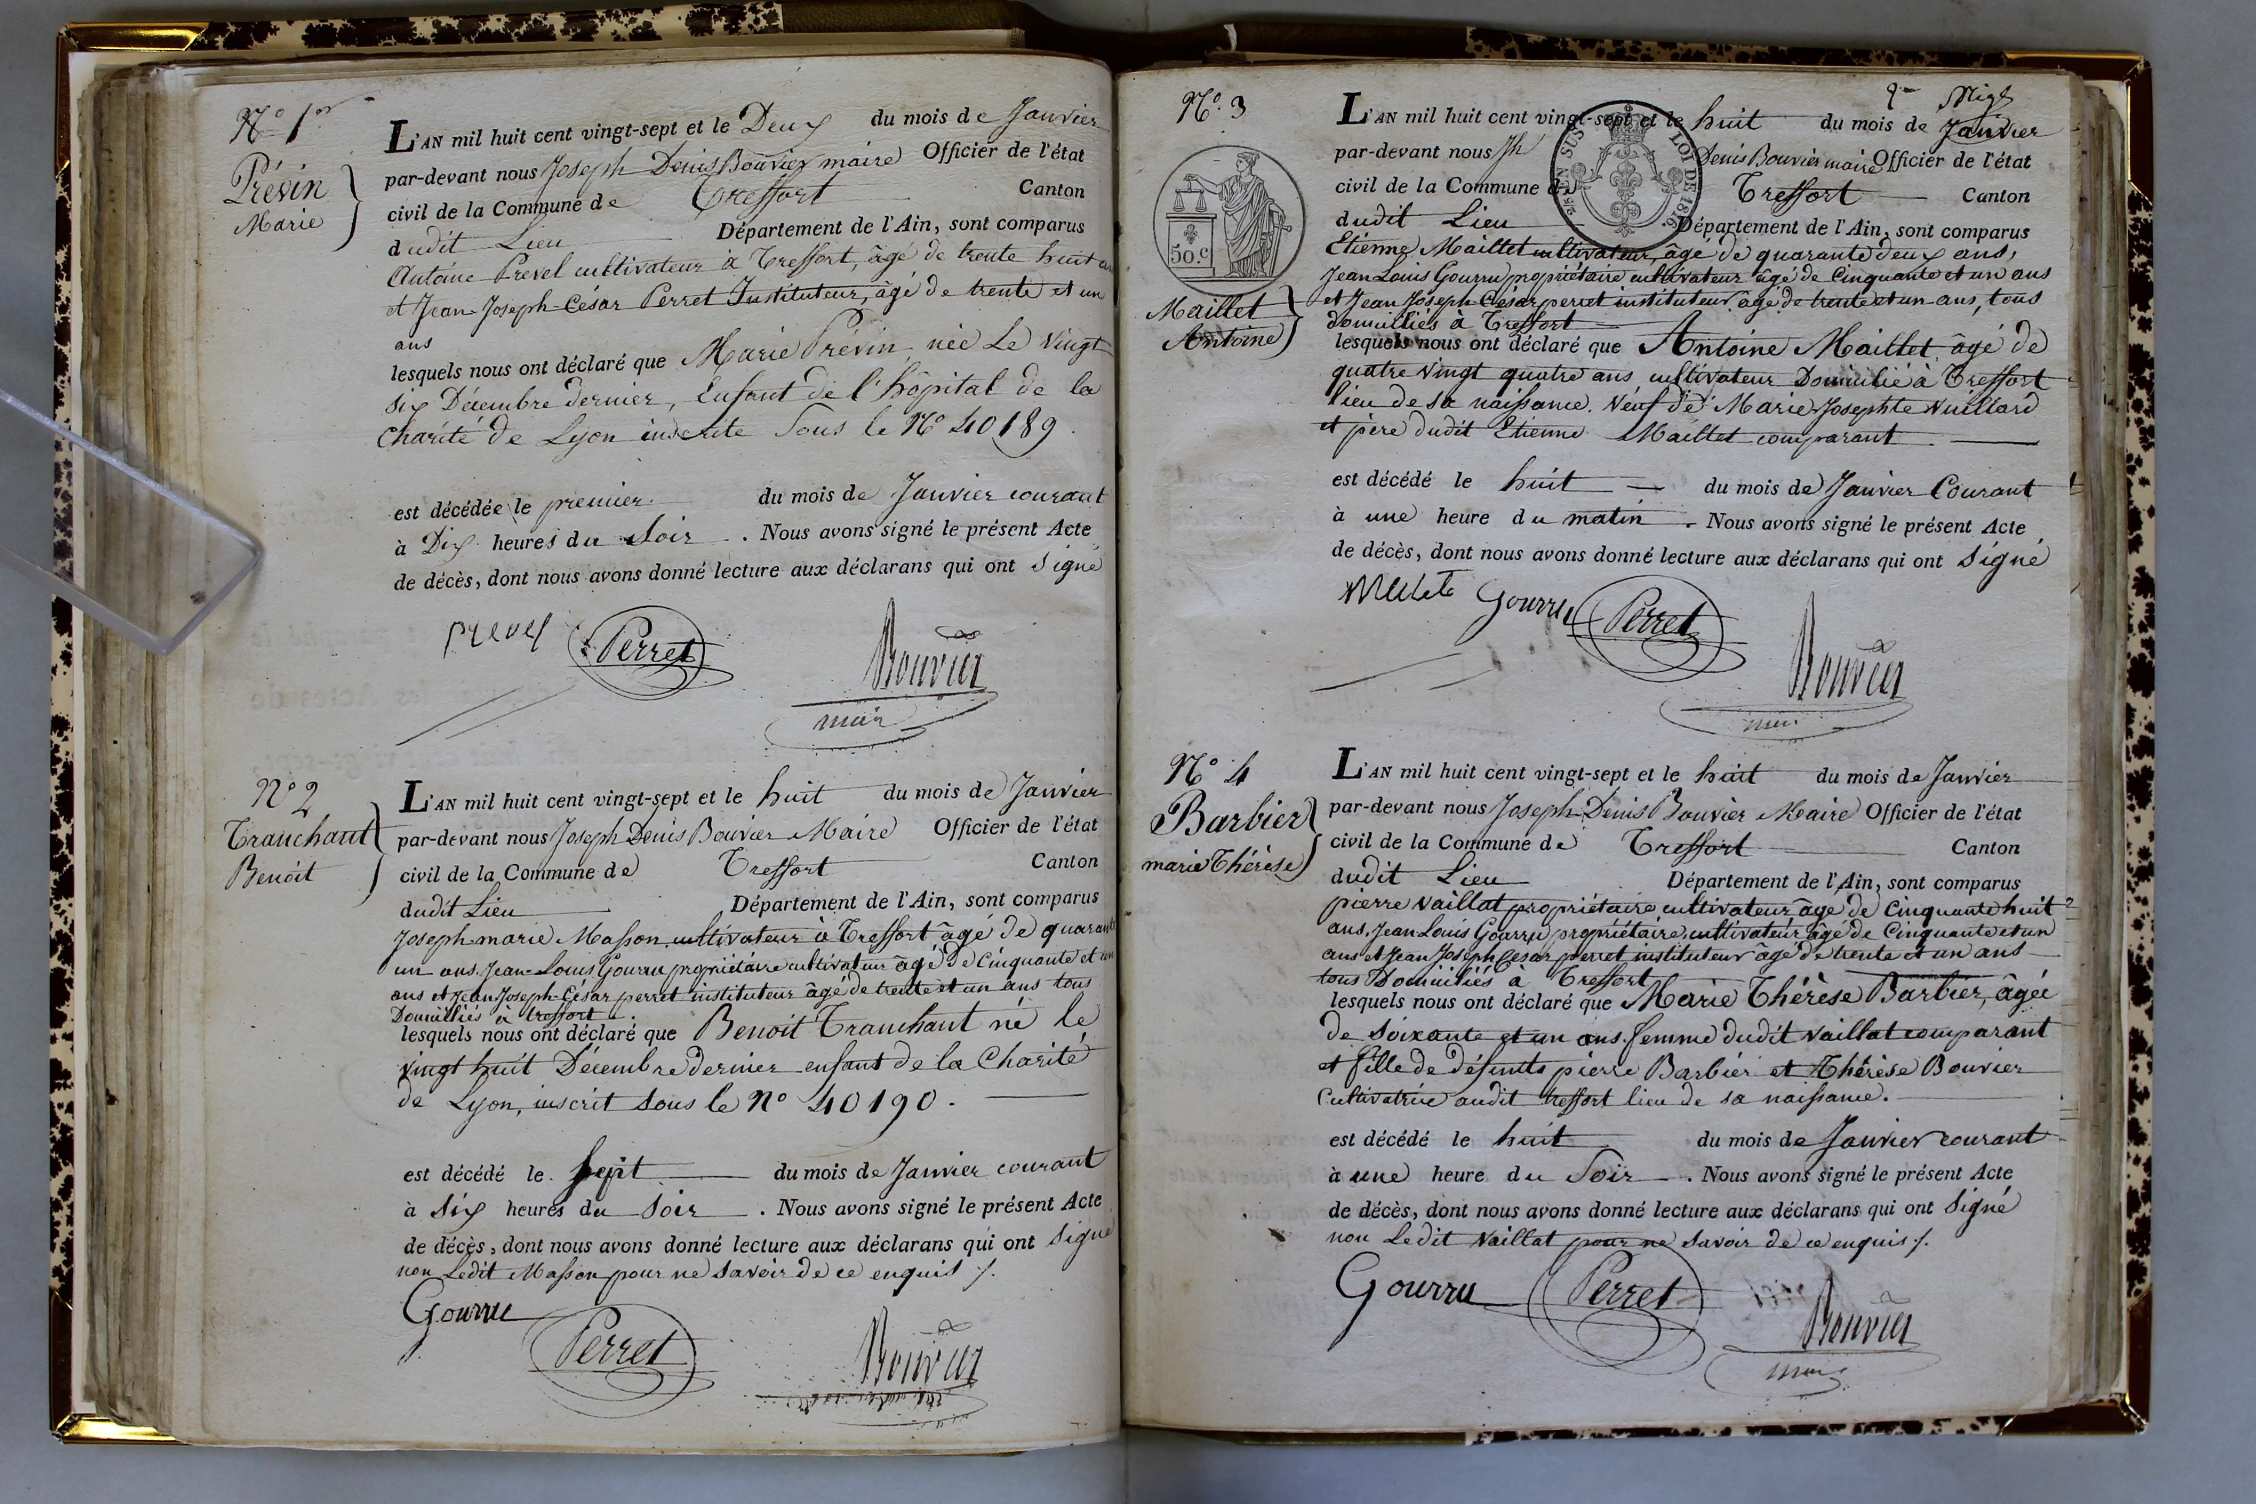 N.° 1.er
Prévin
Marie
L'AN mil huit cent vingt-sept et le Deux du mois de Janvier
par-devant nous Joseph Denis Bouvier maire Officier de l'état
civil de la Commune de Treffort Canton
dudit Lieu Département de l'Ain, sont comparus
Antoine Prevel cultivateur à Treffort, âgé de trente huit an
et Jean-Joseph-César Perret Instituteur, âgé de trente et un
ans
lesquels nous ont déclaré que Marie Prévin née Le vingt
six Décembre dernier, Enfant de l'hôpital de la
Charité de Lyon inscrite Sous le N° 40189.
est décédée le premier du mois de Janvier courant
à Dix heures du Soir. Nous avons signé le présent Acte
de décès, dont nous avons donné lecture aux déclarans qui ont signé
prevel Perret Bouvier
maire
N° 2
Tranchant
Benoit
L'AN mil huit cent vingt-sept et le huit du mois de Janvier
par-devant nous Joseph Denis Bouvier Maire Officier de l'état
civil de la Commune de Treffort Canton
dudit Lieu Département de l'Ain, sont comparus
Joseph-marie Masson, cultivateur à Treffort âgé de quarante
un ans. Jean-Louis Gourru propriétaire cultivateur âgé de Cinquante et un
ans et Jean Joseph-César perret instituteur âgé de trente et un ans tous
Domiciliés à treffort.
lesquels nous ont déclaré que Benoit Tranchant né le
vingt huit Décembre dernier enfant de la Charité
de Lyon, inscrit sous le N° 40190.
est décédé le sept du mois de Janvier courant
à six heures du soir. Nous avons signé le présent Acte
de décès, dont nous avons donné lecture aux déclarans qui ont signé
non Ledit Masson pour ne savoir de ce enquis /.
Gourru
Perret Bouvier
N°. 3
50.C
Maillet
Antoine
L'AN mil huit cent vingt-sept et le huit du mois de Janvier
EN SUS LOI DE 1816.
par-devant nous Jh Denis Bouvier maire Officier de l'état
civil de la Commune de Treffort Canton
dudit Lieu Département de l'Ain, sont comparus
Etienne Maillet cultivateur, âgé de quarante deux ans,
Jean Louis Gourru propriétaire cultivateur âgé de Cinquante et un ans
et Jean Joseph Cesar perret instituteur âgé de trente et un ans, tous
domiciliés à Treffort
lesquels nous ont déclaré que Antoine Maillet, âgé de
quatre vingt quatre ans, cultivateur Domicilié à Treffort
lieu de sa naissance. Veuf de Marie-Josephte Vuillard
et père dudit Etienne Maillet comparant.
est décédé le huit du mois de Janvier Courant
à une heure du matin. Nous avons signé le présent Acte
de décès, dont nous avons donné lecture aux déclarans qui ont signé
Gourru Perret Bouvier
maire
N° 4
Barbier
marie Thérèse
L'AN mil huit cent vingt-sept et le huit du mois de Janvier
par-devant nous Joseph-Denis Bouvier Maire Officier de l'état
civil de la Commune de Treffort Canton
dudit Lieu Département de l'Ain, sont comparus
pierre vaillat propriétaire cultivateur âgé de Cinquante huit
ans, Jean Louis Gourru propriétaire, cultivateur âgé de Cinquante et un
ans et Jean Joseph Cesar perret, instituteur âgé de trente et un ans
tous Domiciliés à Treffort
lesquels nous ont déclaré que Marie Thérèse Barbier, âgée
de soixante et un ans, femme dudit vaillat comparant
et fille de défunts pierre Barbier et Thérèse Bouvier
Cultivatrice audit treffort lieu de sa naissance.
est décédé le huit du mois de Janvier courant
à une heure du Soir. Nous avons signé le présent Acte
de décès, dont nous avons donné lecture aux déclarans qui ont signé
non Ledit vaillat pour ne savoir de ce enquis /.
Gourru Perret Bouvier
maire